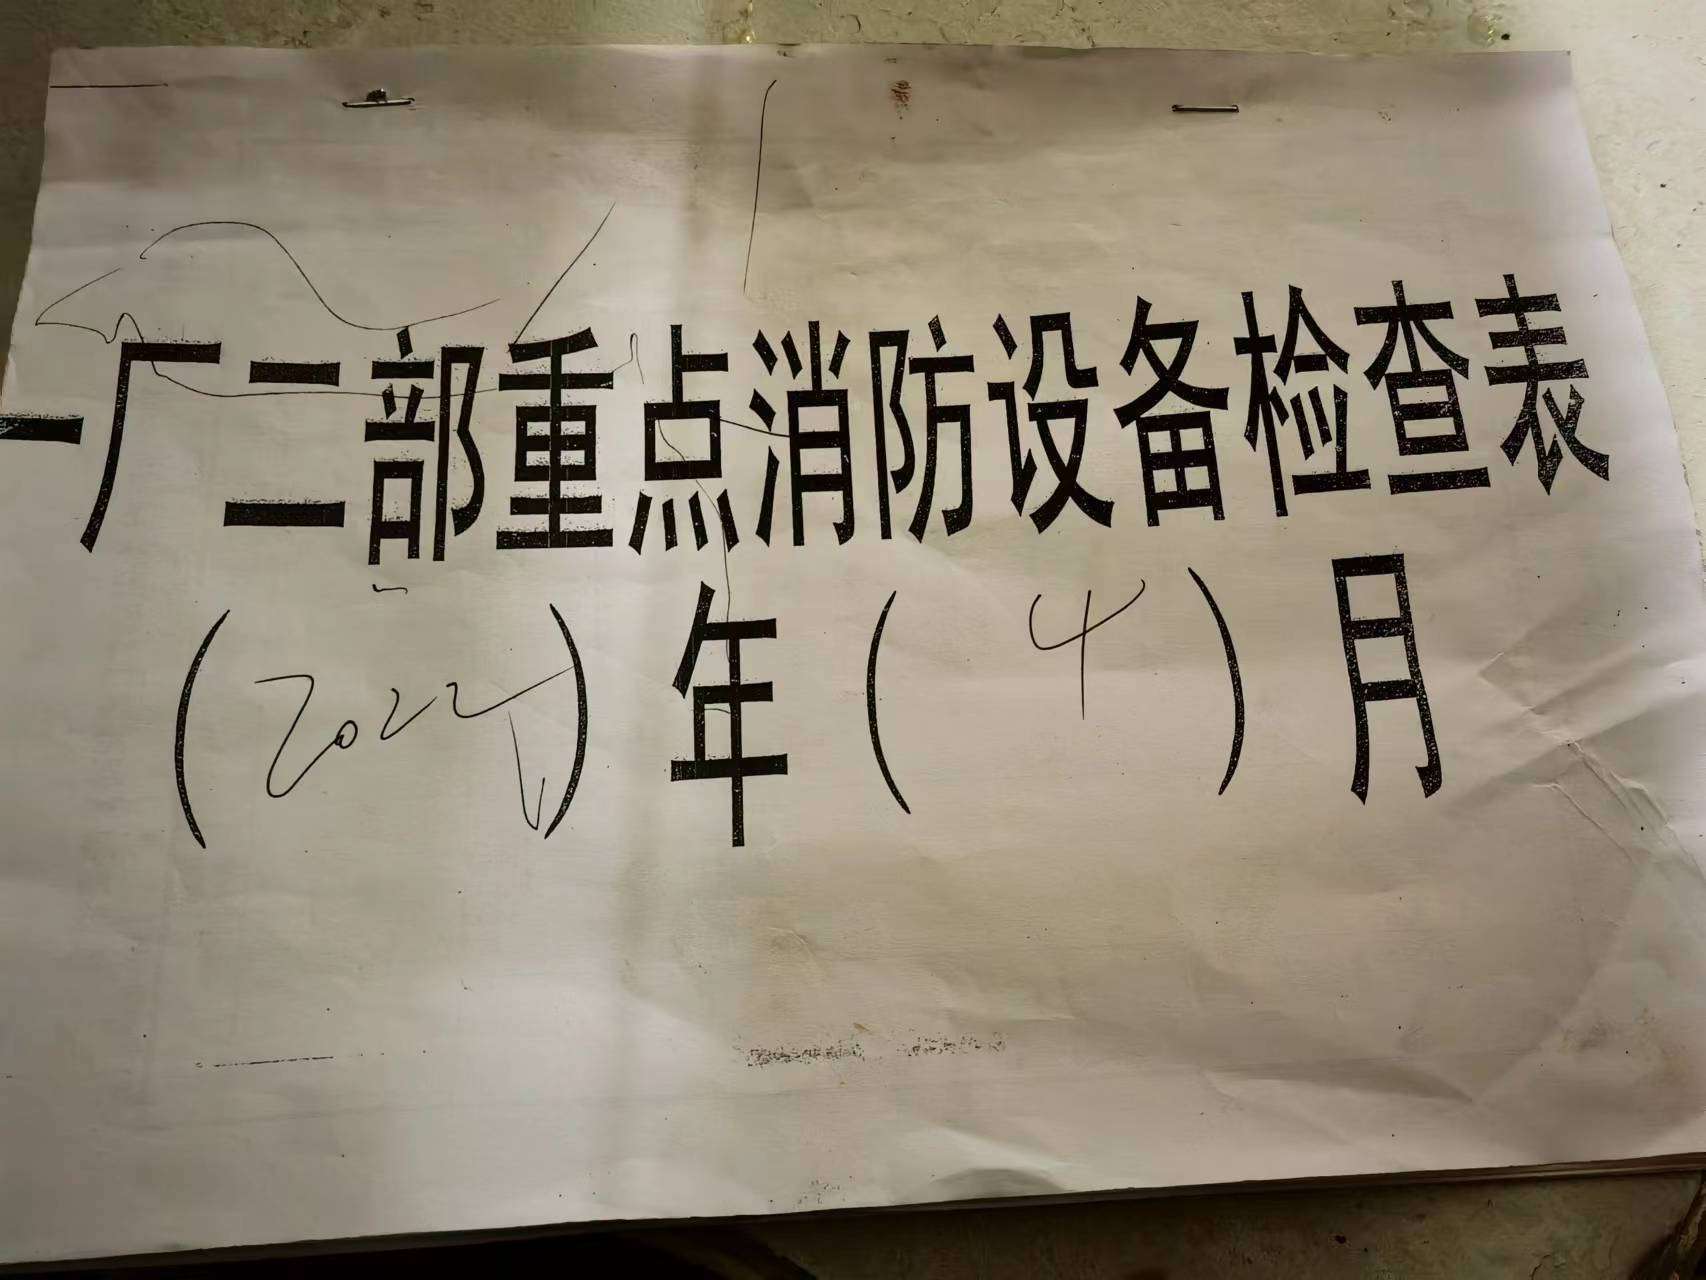 一厂二部重点消防设备检查表
(2022)年(4)月